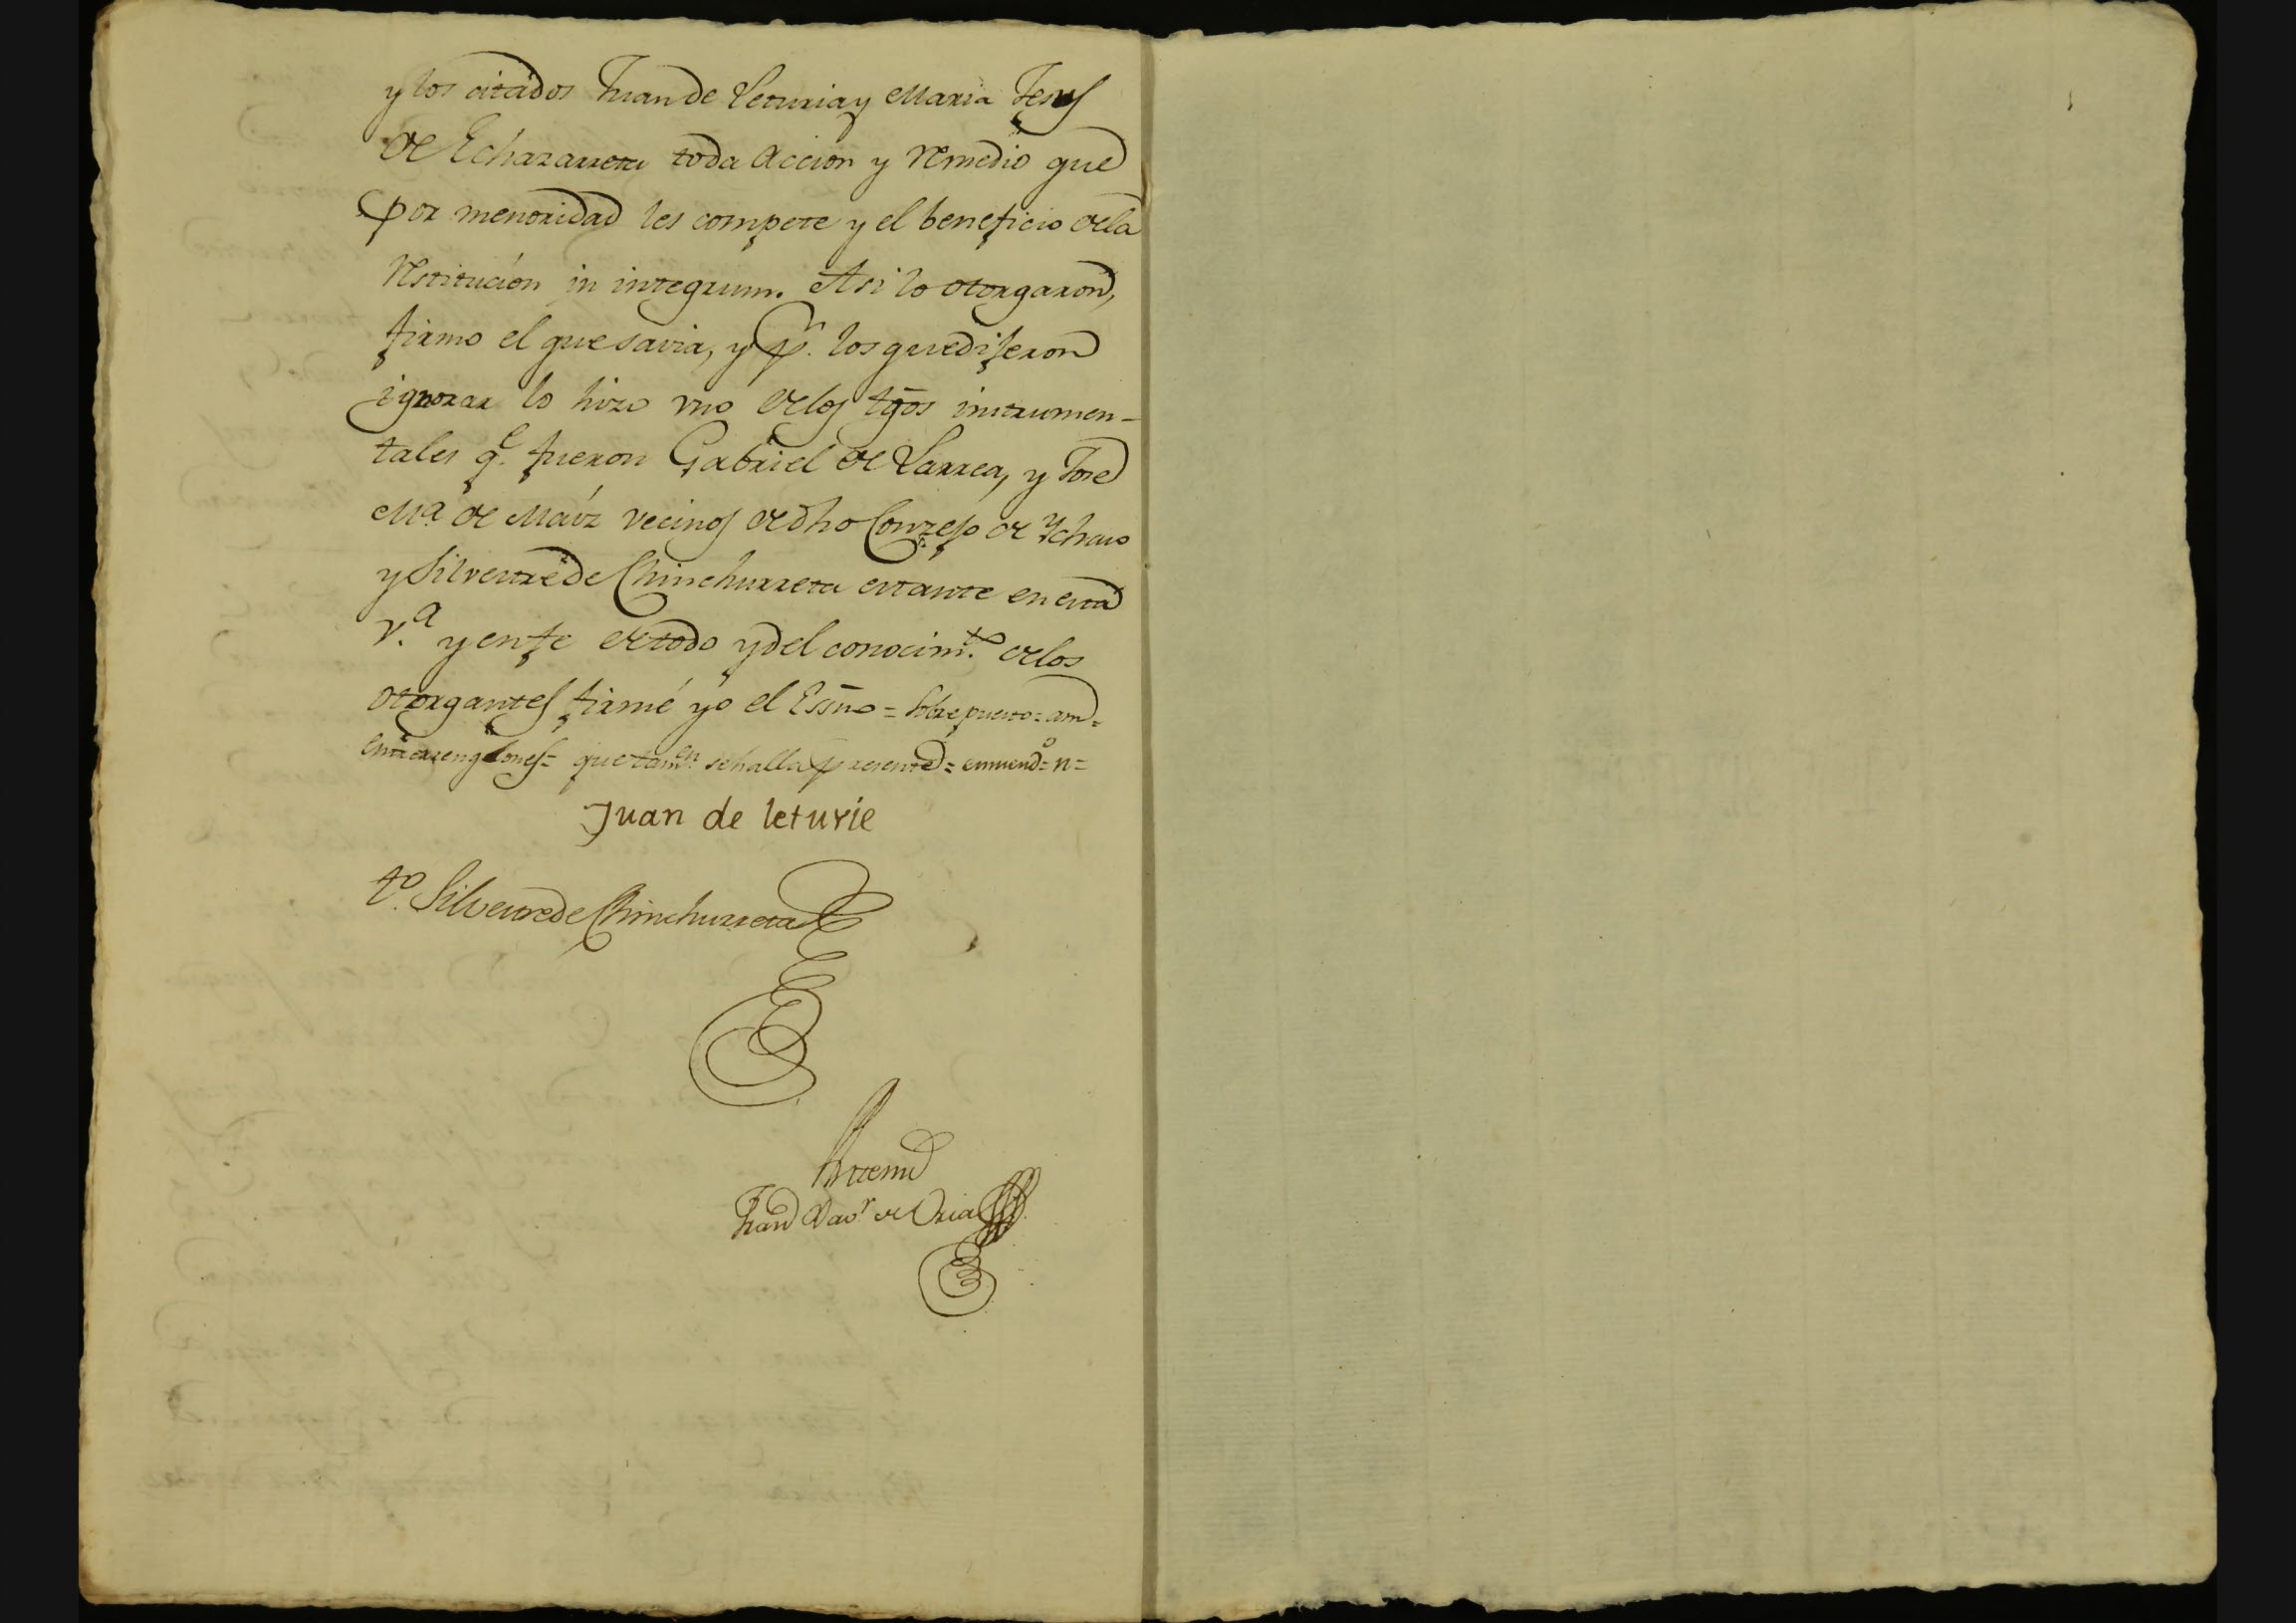 y los citados Juan de Leturia y Maria Jesus
de Echazarreta toda accion y remedio que
por menoridad les compete y el beneficio dela
restitucion in integrum. Asi lo otorgaron,
firmo el que savia, y pr. los que dijeron
ignorar lo hizo uno delos tgos instrumen-
tales qe. fueron Gabriel de Larrea, y Jose
Ma. de Maiz vecinos de dho Conzejo de Ychaso
y Silvestre de Chinchurreta estante en esta
va. y en fe de todo y del conocimto. delos
otorgantes firmé yo el Essno = Sobrepuesto = am =
entrerrenglones = que tamen. se halla presente = enmendo = n =
Juan de leturie
to. Silvestre de Chinchurreta
Antemi
Juan Bavr de Oria